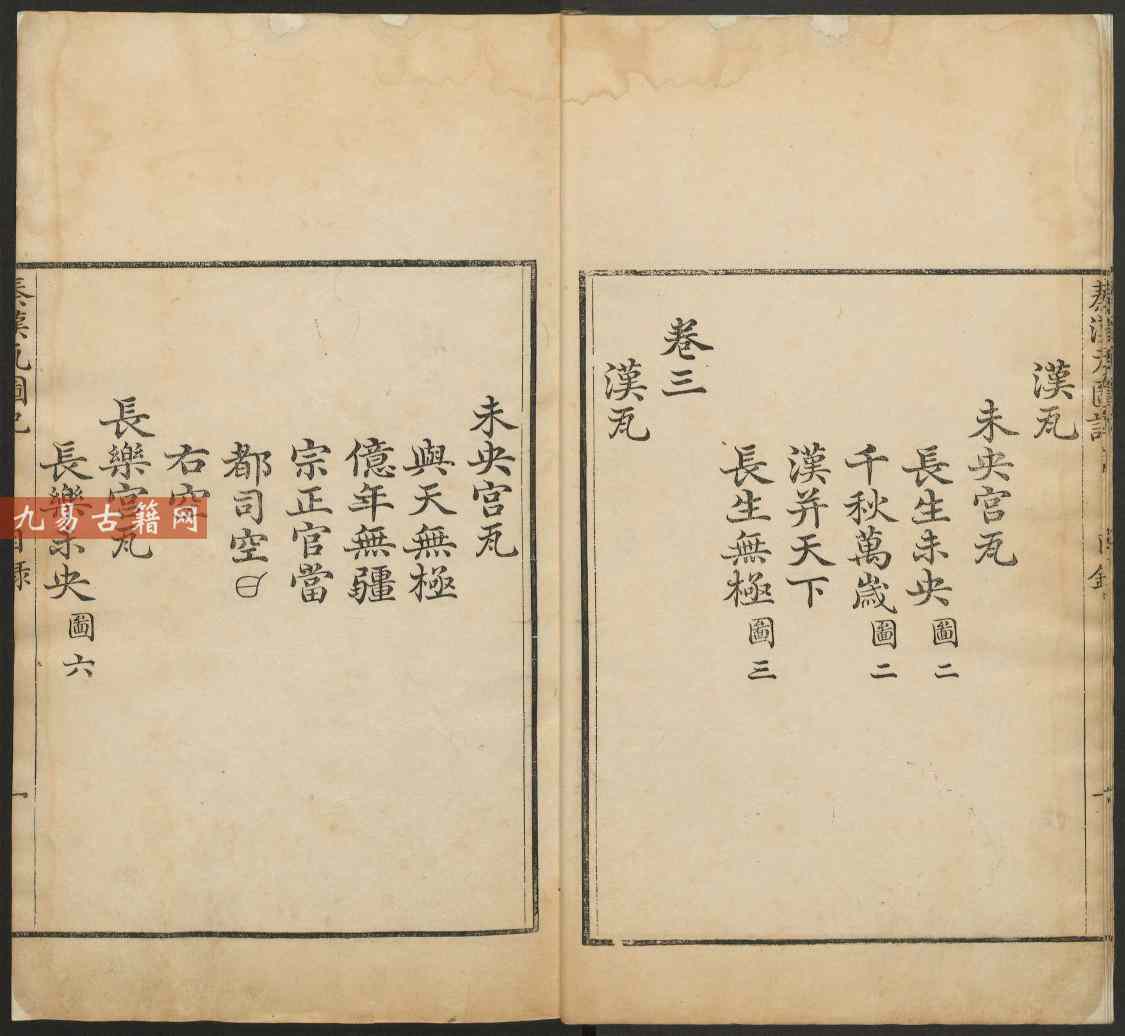 漢瓦
未央宫瓦
長生未央圖二
千秋萬歲圖二
漢并天下
長生無極圖三
卷三
漢瓦
未央宫瓦
與天無極
億年無疆
宗正官當
都司空
右空
長樂宫瓦
長樂未央圖六
秦漢瓦圖記
目錄
一
九易古籍网